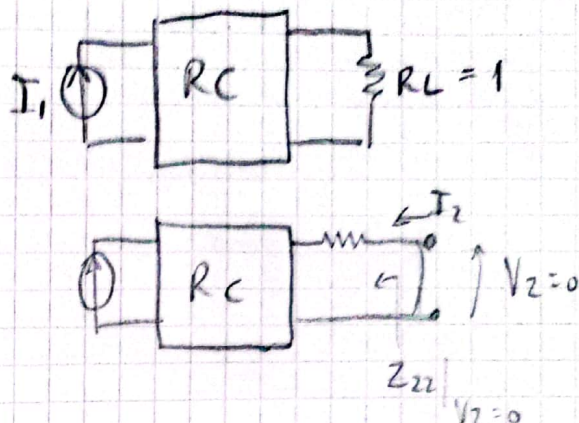 I₁ RC RL = 1
I₂
RC V₂=0
Z₂₂|V₂=0